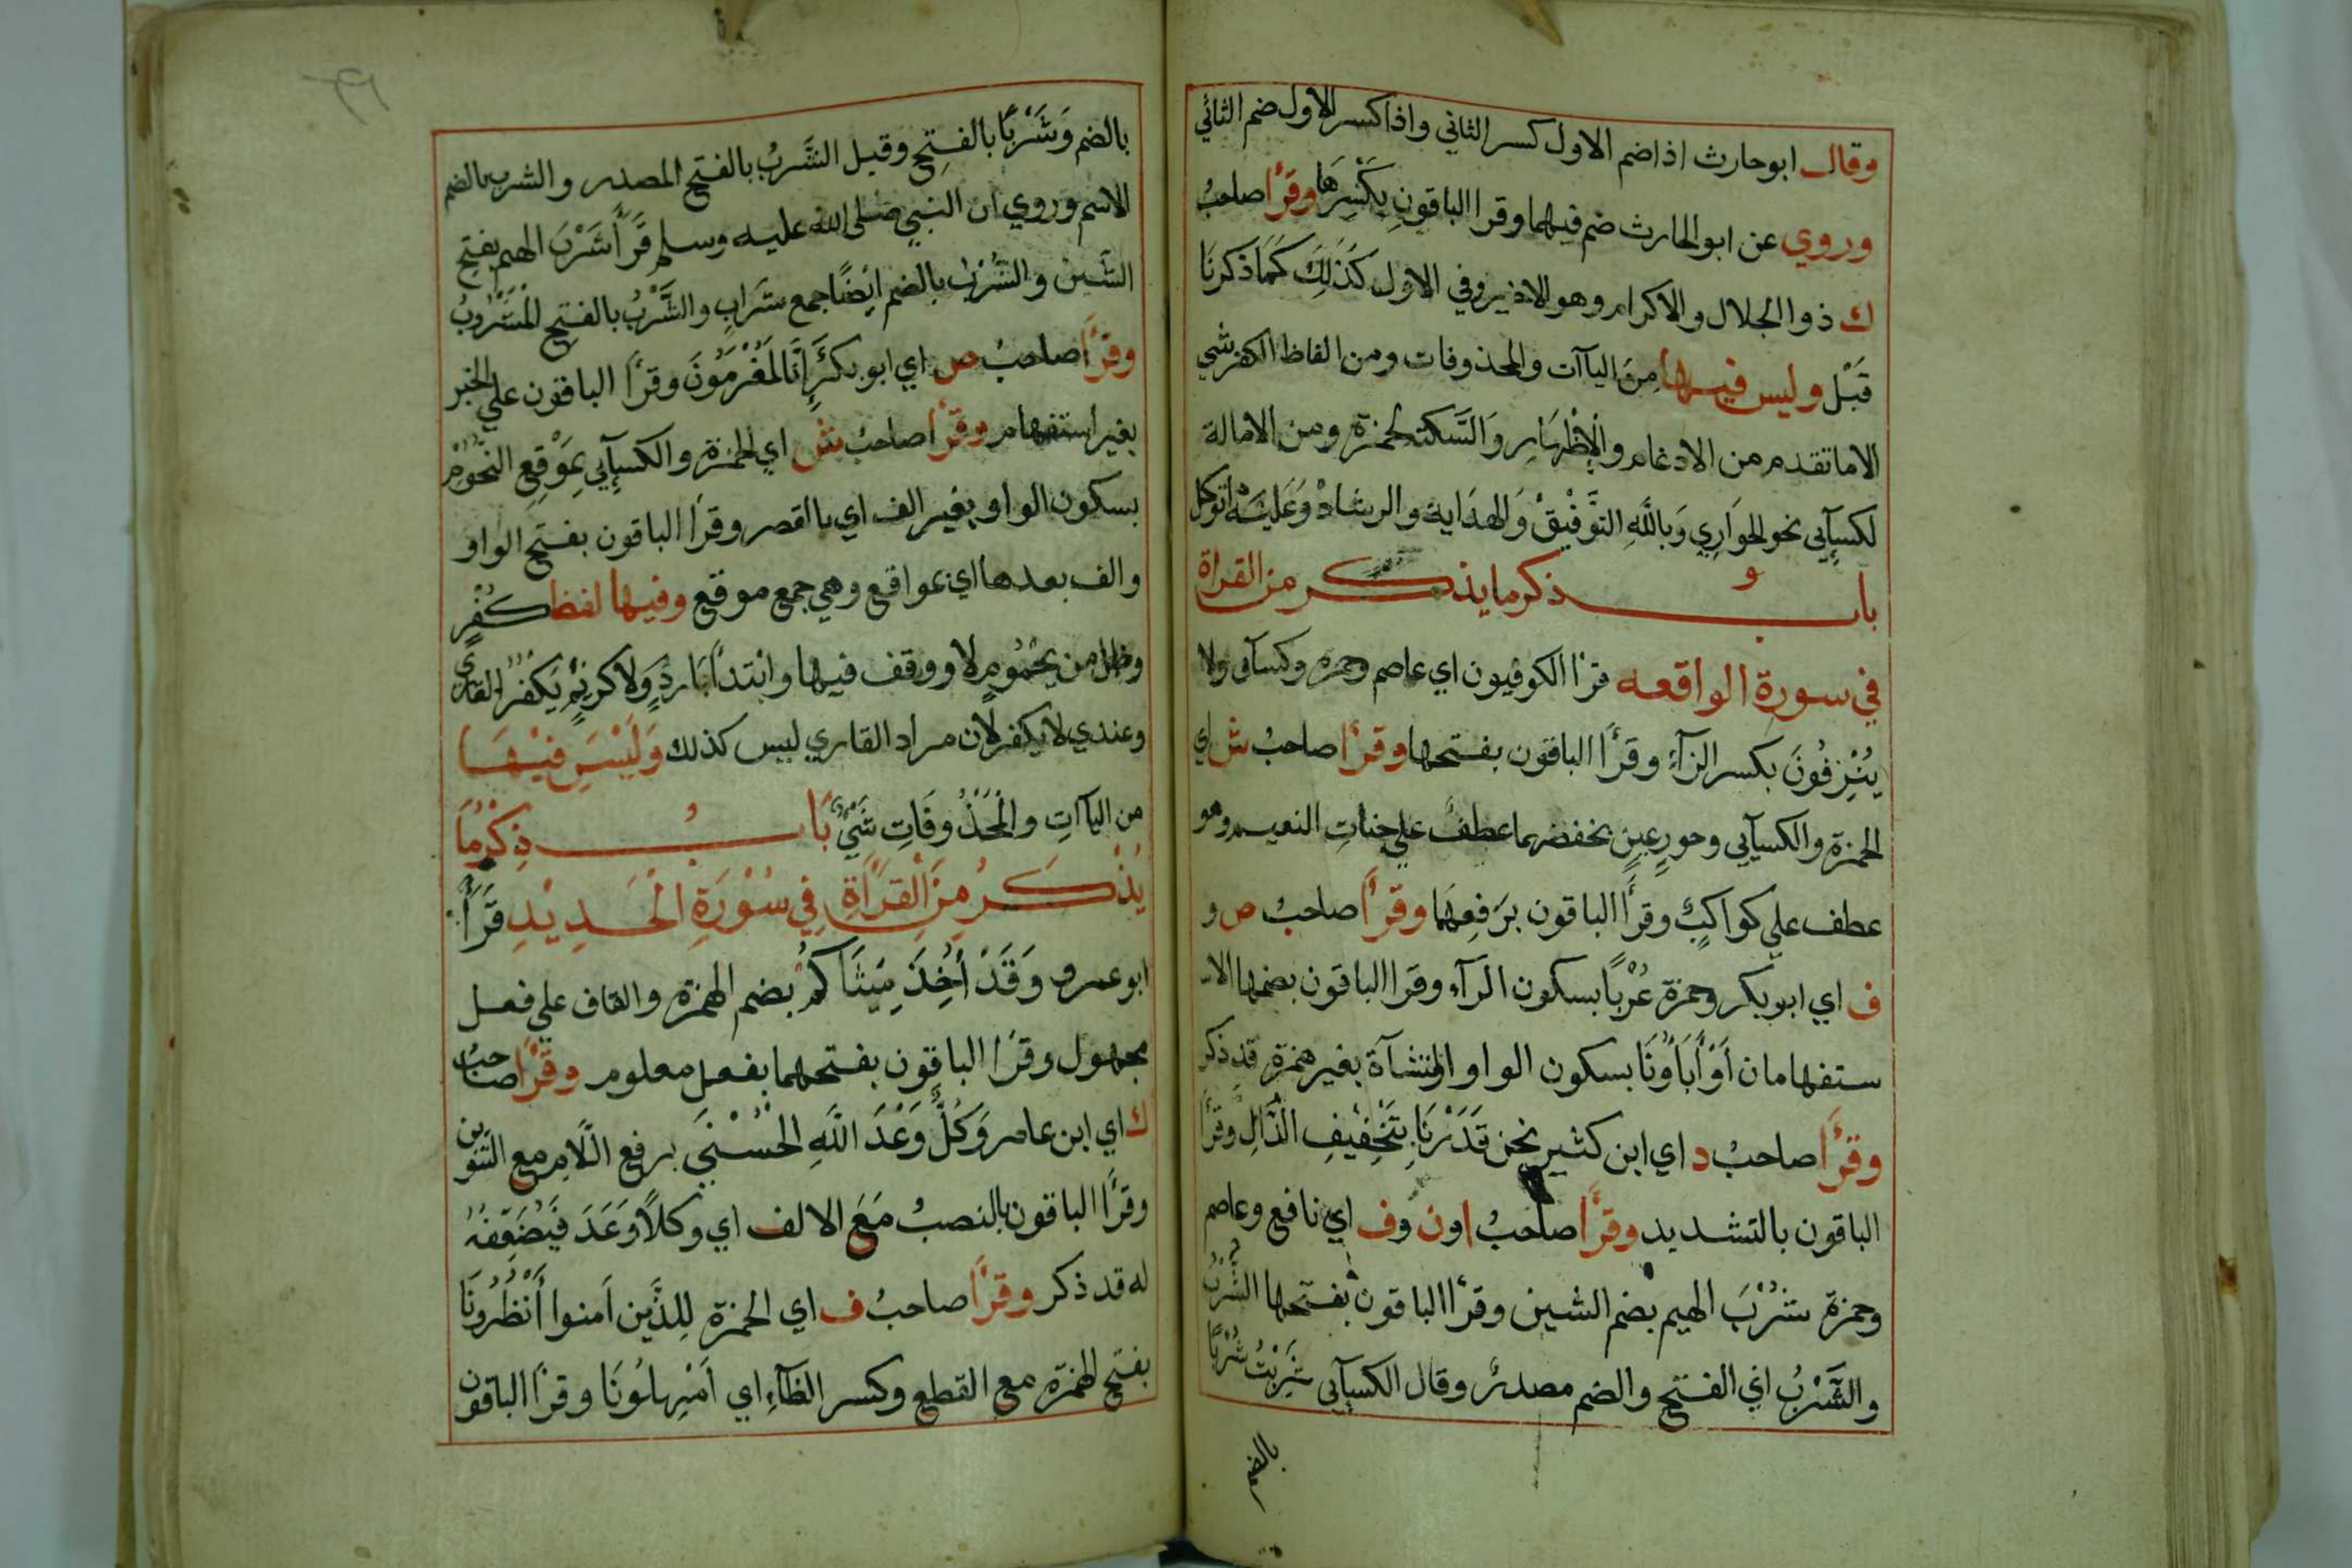 وقال ابو حارث اذا ضم الاول كسر الثاني واذا كسر الاول ضم الثاني
وروي عن ابو الحارث ضم فيهما وقرا الباقون بكسرها وقرأ صاحب
ك ذوا الجلال والاكرام وهو الاخير وفي الاول كذلك كما ذكرنا
قبل وليس فيها من الياآت والمحذوفات ومن الفاظ الكفر شي
الاما تقدم من الادغام والإظهار والسكتة لحمزة ومن الامالة
لكسآيي نحو الجواري وبالله التوفيق والهداية والرشاد وعليه اتوكل
باب ذكر ما يذكر من القراة
في سورة الواقعه قرأ الكوفيون اي عاصم وحمزه وكسآى ولا
ينزفون بكسر الزآء وقرأ الباقون بفتحها وقرأ صاحب ش اي
الحمزة والكسآيي وحور عين بخفضهما عطف علي جنات النعيم وهو
عطف علي كواكب وقرأ الباقون برفعهما وقرأ صاحب ص و
ف اي ابو بكر وحمزة عُرْبًا بسكون الرآء وقرا الباقون بضمها الا
ستفهامان أوْ أباؤنا بسكون الواو المنشآة بغير همزة قد ذكر
وقرأ صاحب د اي ابن كثير نحن قدرنا بتخفيف الدّال وقرأ
الباقون بالتشديد وقرأ صاحب ا ون وف اي نافع وعاصم
وحمزة شُرْبَ الهيم بضم الشين وقرأ الباقون بفتحها الشُّرب
والشَّرْبُ اي الفتح والضم مصدر وقال الكسآيي شربت شُرْبًا
بالضم
بالضم وشَرْبًا بالفتح وقيل الشَّربُ بالفتح المصدر والشرب بالضم
الاسم وروي ان النبي صلى الله عليه وسلم قرأ شَرْبَ الهيم بفتح
الشين والشرب بالضم ايضًا جمع شراب والشَّرْبُ بالفتح المشروب
وقرأ صاحب ص اي ابو بكر أإنا لمغرمون وقرأ الباقون علي الخبر
بغير استفهام وقرأ صاحب ش اي الحمزة والكسآيي بموقع النجوم
بسكون الواو بغير الف اي بالقصر وقرا الباقون بفتح الواو
والف بعدها اي بمواقع وهي جمع موقع وفيها لفظ كفر
وظل من يحموم لا ووقف فيها وابتدأ بارد ولا كريم يكفر القاري
وعندي لا يكفر لان مراد القاري ليس كذلك وليس فيها
من الياآت والمحذوفات شيءٌ باب ذكر ما
يذكر من القراة في سورة الحديد قرأ
ابو عمرو وقد أُخِذَ ميثاكم بضم الهمزة والقاف علي فعل
مجهول وقرا الباقون بفتحهما بفعل معلوم وقرأ صاحب
ك اي ابن عامر وكلٌّ وعد الله الحسني برفع اللام مع التنوين
وقرأ الباقون بالنصب مع الالف اي وكلاً وعد فيضعفه
له قد ذكر وقرأ صاحب ف اي الحمزة للذين آمنوا أنظرونا
بفتح الهمزة مع القطع وكسر الظآء اي أمهلونا وقرأ الباقون